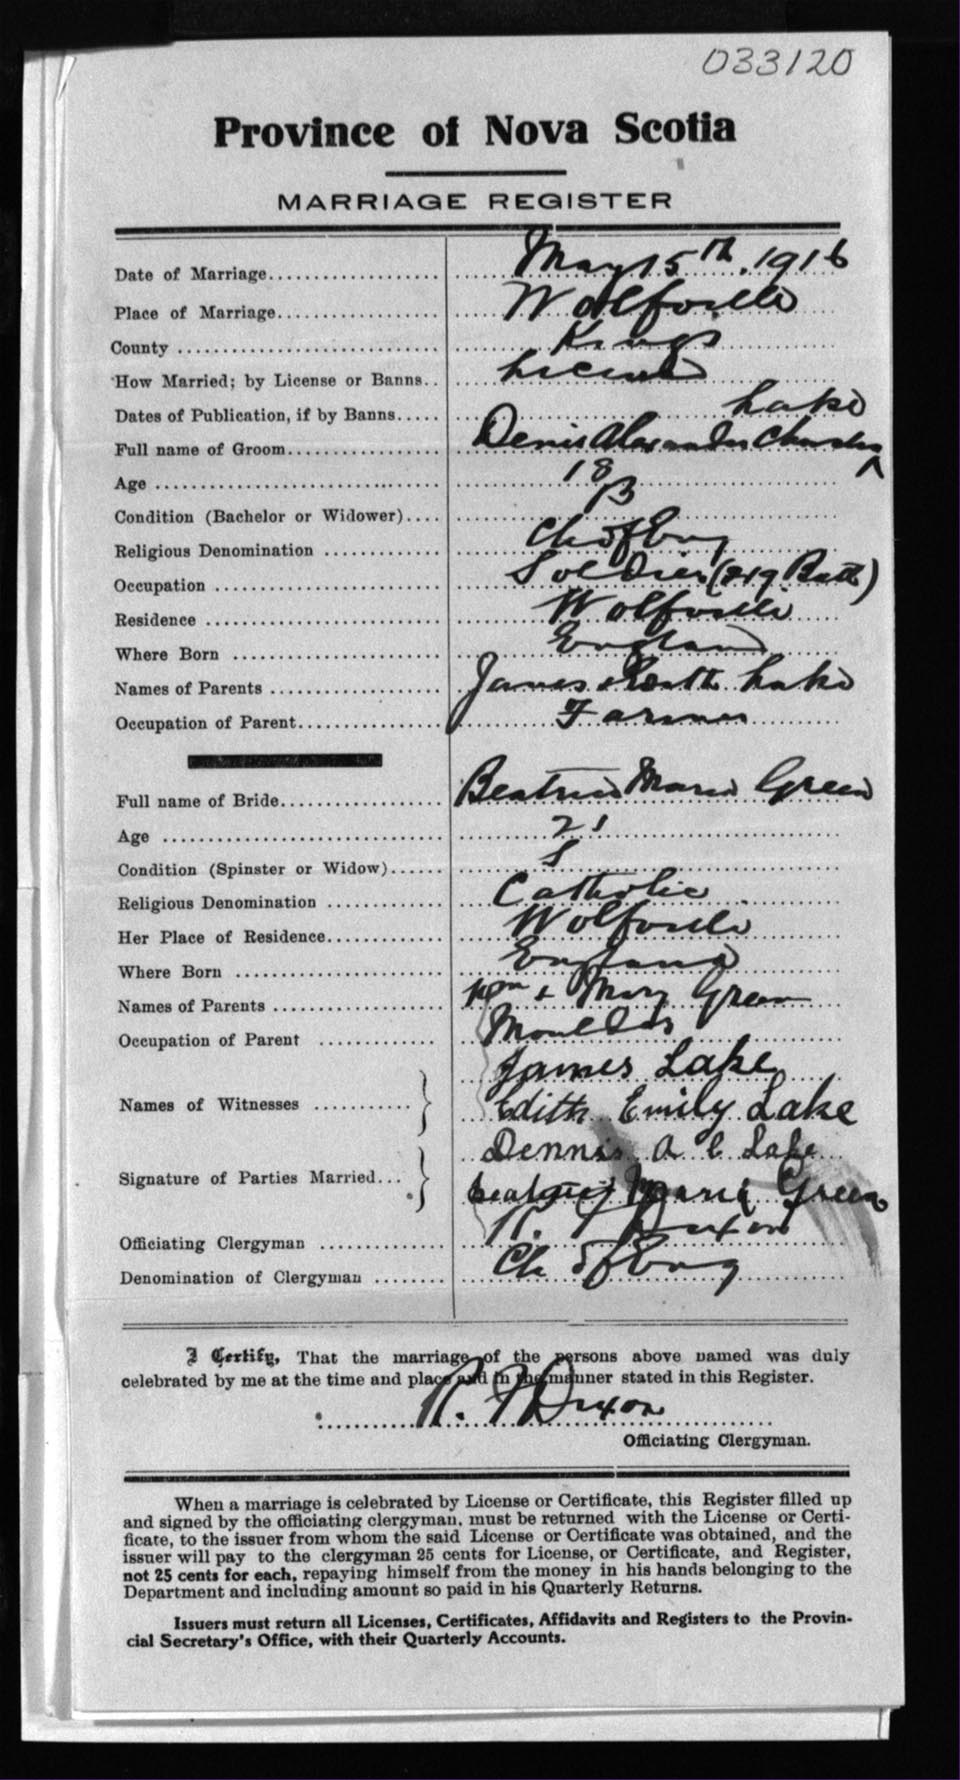 033120
Province of Nova Scotia
MARRIAGE REGISTER
Date of Marriage.................... May 15th, 1916
Place of Marriage................... Wolfville
County ............................. Kings
How Married; by License or Banns.. License
Dates of Publication, if by Banns.....
Lake
Full name of Groom.................. Denis Alexander Charles ^
Age ................................ 18
Condition (Bachelor or Widower).... B
Religious Denomination ............. Ch of Eng
Occupation ......................... Soldier (219 Batt)
Residence .......................... Wolfville
Where Born ......................... England
Names of Parents ................... James & Edith Lake
Occupation of Parent................ Farmer
Full name of Bride.................. Beatrice Marie Green
Age ................................ 21
Condition (Spinster or Widow)...... S
Religious Denomination ............. Catholic
Her Place of Residence.............. Wolfville
Where Born ......................... England
Names of Parents ................... Wm & Mary Green
Occupation of Parent ............... Moulder
James Lake
Names of Witnesses ............ } Edith Emily Lake
Dennis A C Lake
Signature of Parties Married... } Beatrice Marie Green
Officiating Clergyman .............. R. F. Dixon
Denomination of Clergyman ........ Ch of Eng
I Certify, That the marriage of the persons above named was duly
celebrated by me at the time and place and in the manner stated in this Register.
R. F. Dixon
Officiating Clergyman.
When a marriage is celebrated by License or Certificate, this Register filled up
and signed by the officiating clergyman, must be returned with the License or Certi-
ficate, to the issuer from whom the said License or Certificate was obtained, and the
issuer will pay to the clergyman 25 cents for License, or Certificate, and Register,
not 25 cents for each, repaying himself from the money in his hands belonging to the
Department and including amount so paid in his Quarterly Returns.
Issuers must return all Licenses, Certificates, Affidavits and Registers to the Provin-
cial Secretary's Office, with their Quarterly Accounts.